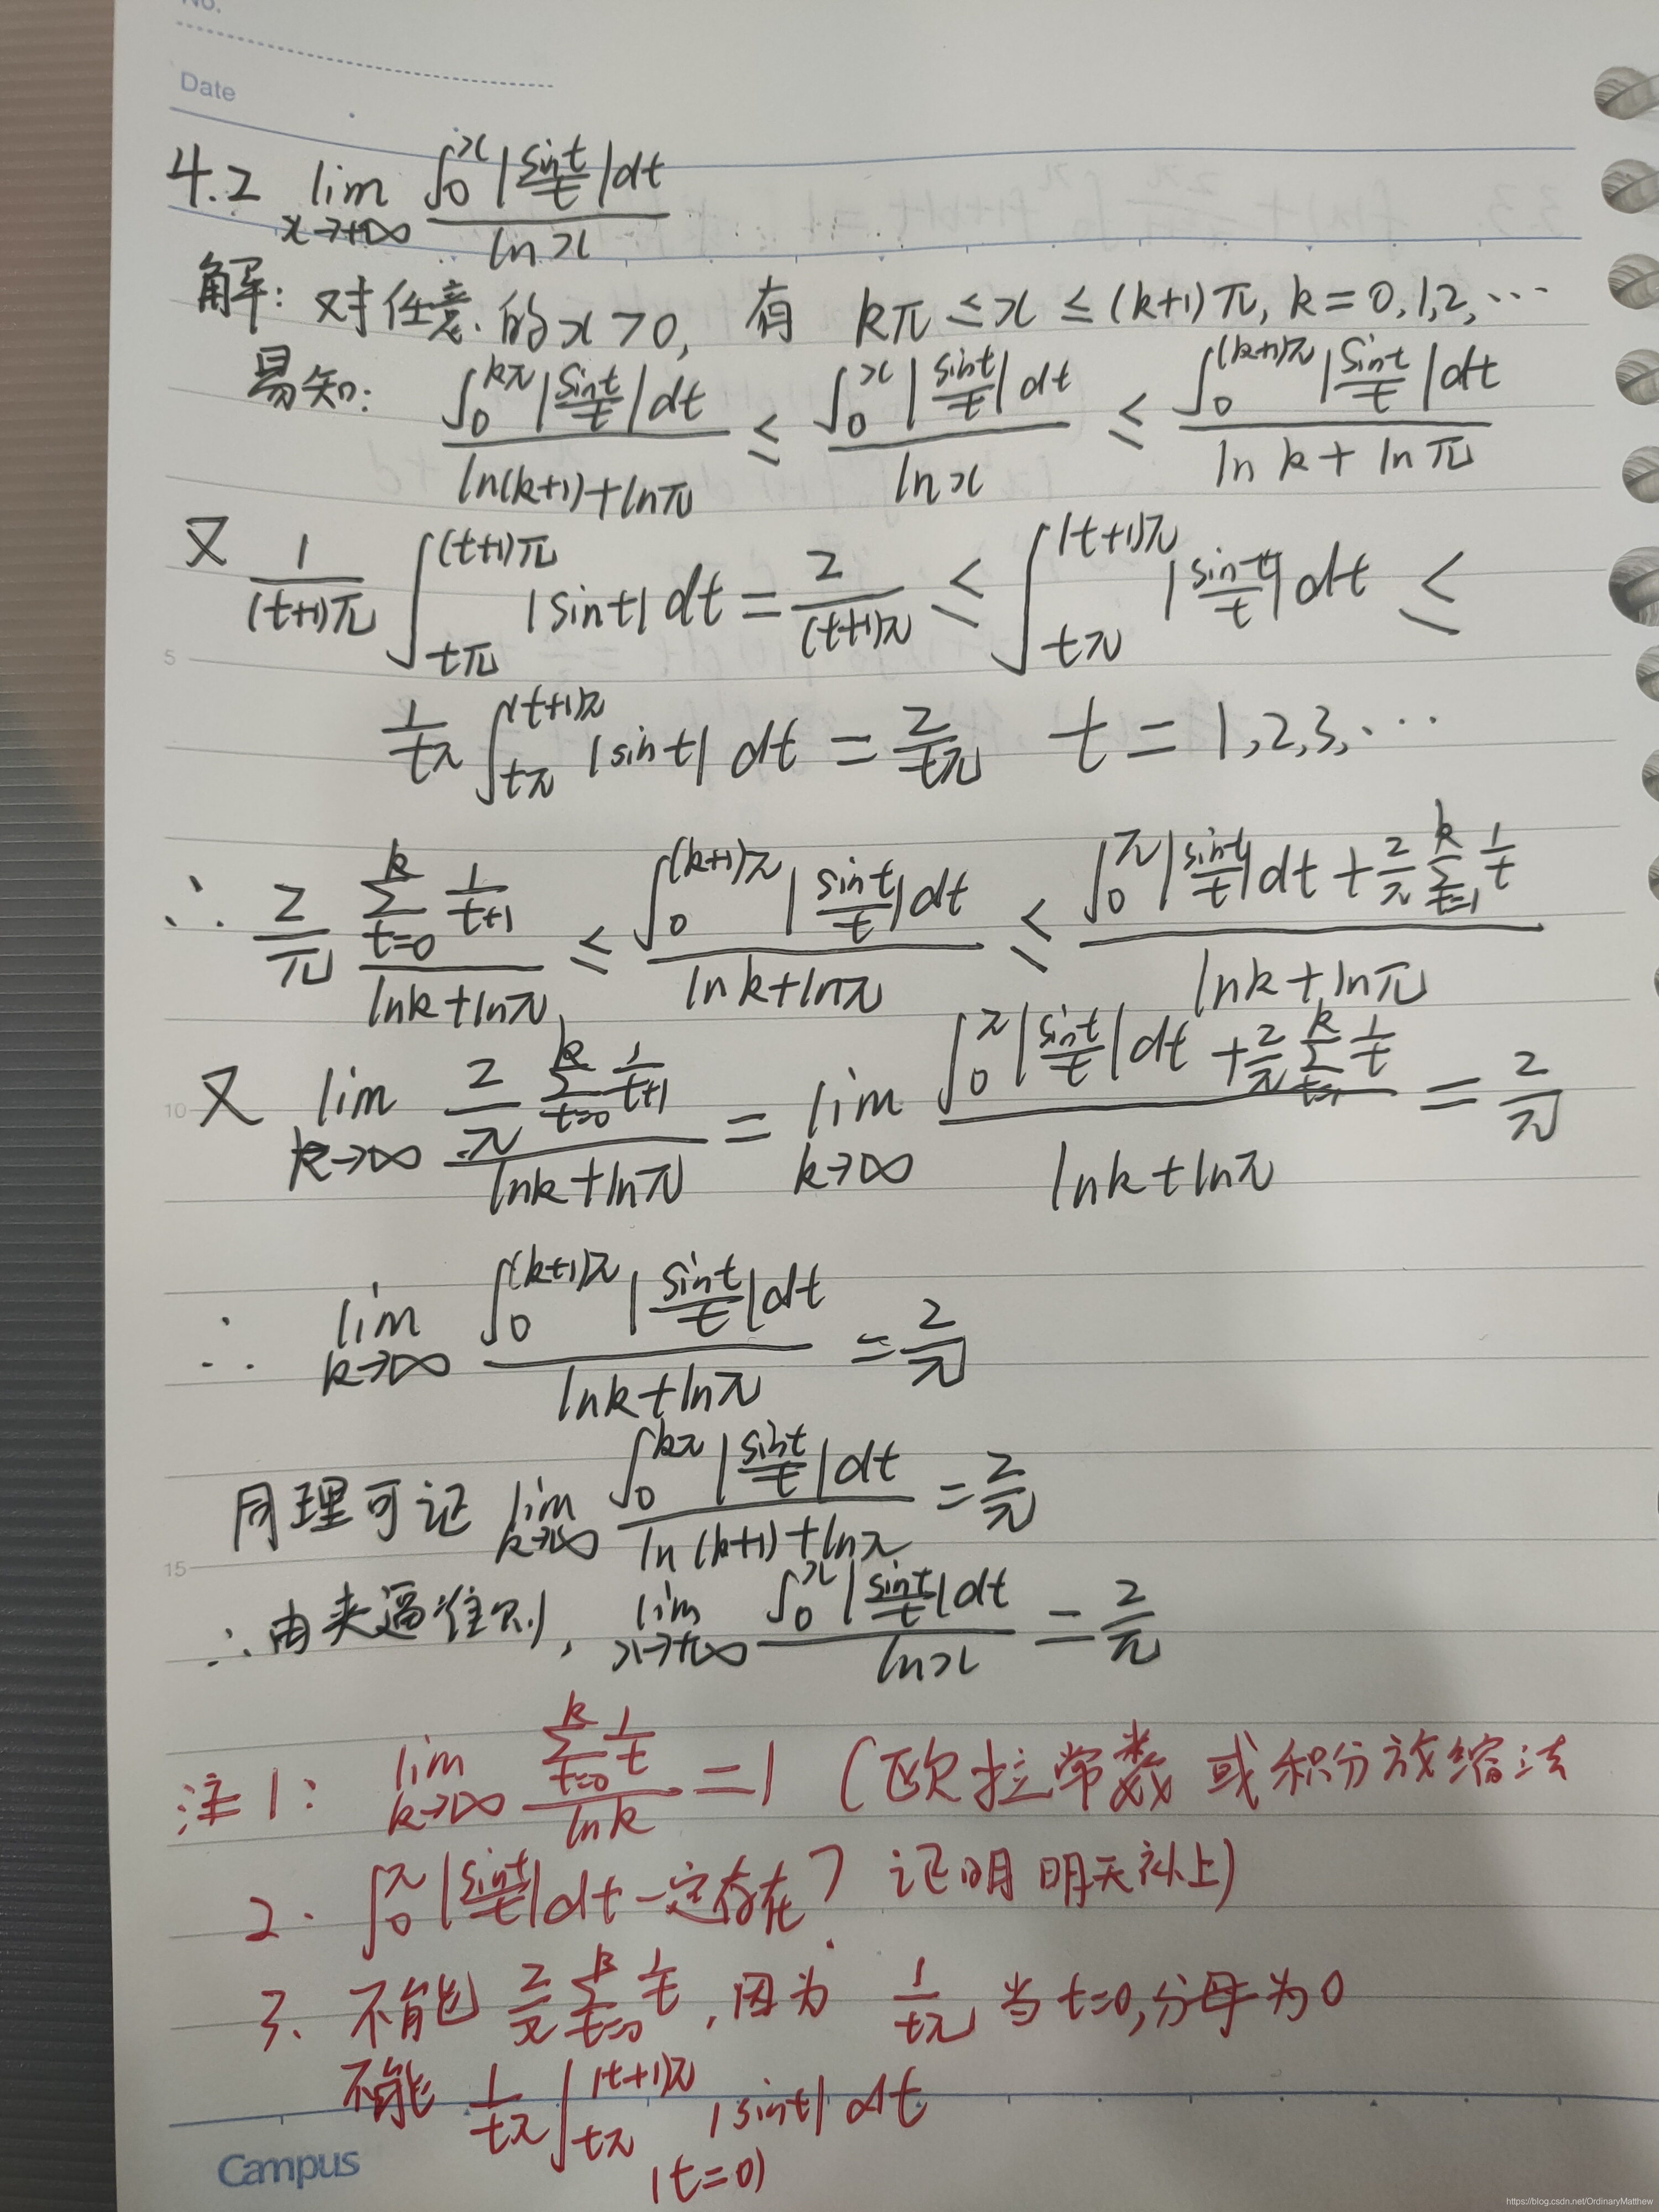 No.
Date
4.2 lim_{x→+∞} \frac{∫_0^x |\frac{sint}{t}|dt}{ln x}
解: 对任意的 x>0, 有 kπ ≤ x ≤ (k+1)π, k=0,1,2,…
易知: \frac{∫_0^{kπ} |\frac{sint}{t}|dt}{ln(k+1)+lnπ} ≤ \frac{∫_0^x |\frac{sint}{t}|dt}{ln x} ≤ \frac{∫_0^{(k+1)π} |\frac{sint}{t}|dt}{ln k + ln π}
又 \frac{1}{(t+1)π} ∫_{tπ}^{(t+1)π} |sint| dt = \frac{2}{(t+1)π} ≤ ∫_{tπ}^{(t+1)π} |\frac{sint}{t}| dt ≤
5
\frac{1}{tπ} ∫_{tπ}^{(t+1)π} |sint| dt = \frac{2}{tπ} t = 1,2,3,…
∴ \frac{2}{π} \frac{\sum_{t=0}^{k} \frac{1}{t+1}}{lnk+lnπ} ≤ \frac{∫_0^{(k+1)π} |\frac{sint}{t}|dt}{lnk+lnπ} ≤ \frac{∫_0^π |\frac{sint}{t}|dt + \frac{2}{π} \sum_{t=1}^{k} \frac{1}{t}}{lnk+lnπ}
10
又 lim_{k→∞} \frac{\frac{2}{π} \sum_{t=0}^{k} \frac{1}{t+1}}{lnk+lnπ} = lim_{k→∞} \frac{∫_0^π |\frac{sint}{t}|dt + \frac{2}{π} \sum_{t=1}^{k} \frac{1}{t}}{lnk+lnπ} = \frac{2}{π}
∴ lim_{k→∞} \frac{∫_0^{(k+1)π} |\frac{sint}{t}|dt}{lnk+lnπ} = \frac{2}{π}
同理可记 lim_{k→∞} \frac{∫_0^{kπ} |\frac{sint}{t}|dt}{ln(k+1)+lnπ} = \frac{2}{π}
15
∴ 由夹逼准则, lim_{x→+∞} \frac{∫_0^x |\frac{sint}{t}|dt}{lnx} = \frac{2}{π}
注1: lim_{k→∞} \frac{\sum_{t=0}^{k} \frac{1}{t}}{lnk} = 1 (欧拉常数 或积分放缩法
2. ∫_0^π |\frac{sint}{t}|dt 一定存在? 记明 明天补上)
3. 不能 \frac{2}{π} \sum_{t=0}^{k} \frac{1}{t}, 因为 \frac{1}{tπ} 当 t=0, 分母为0
不能 \frac{1}{tπ} ∫_{tπ}^{(t+1)π} |sint| dt
(t=0)
Campus
https://blog.csdn.net/OrdinaryMatthew